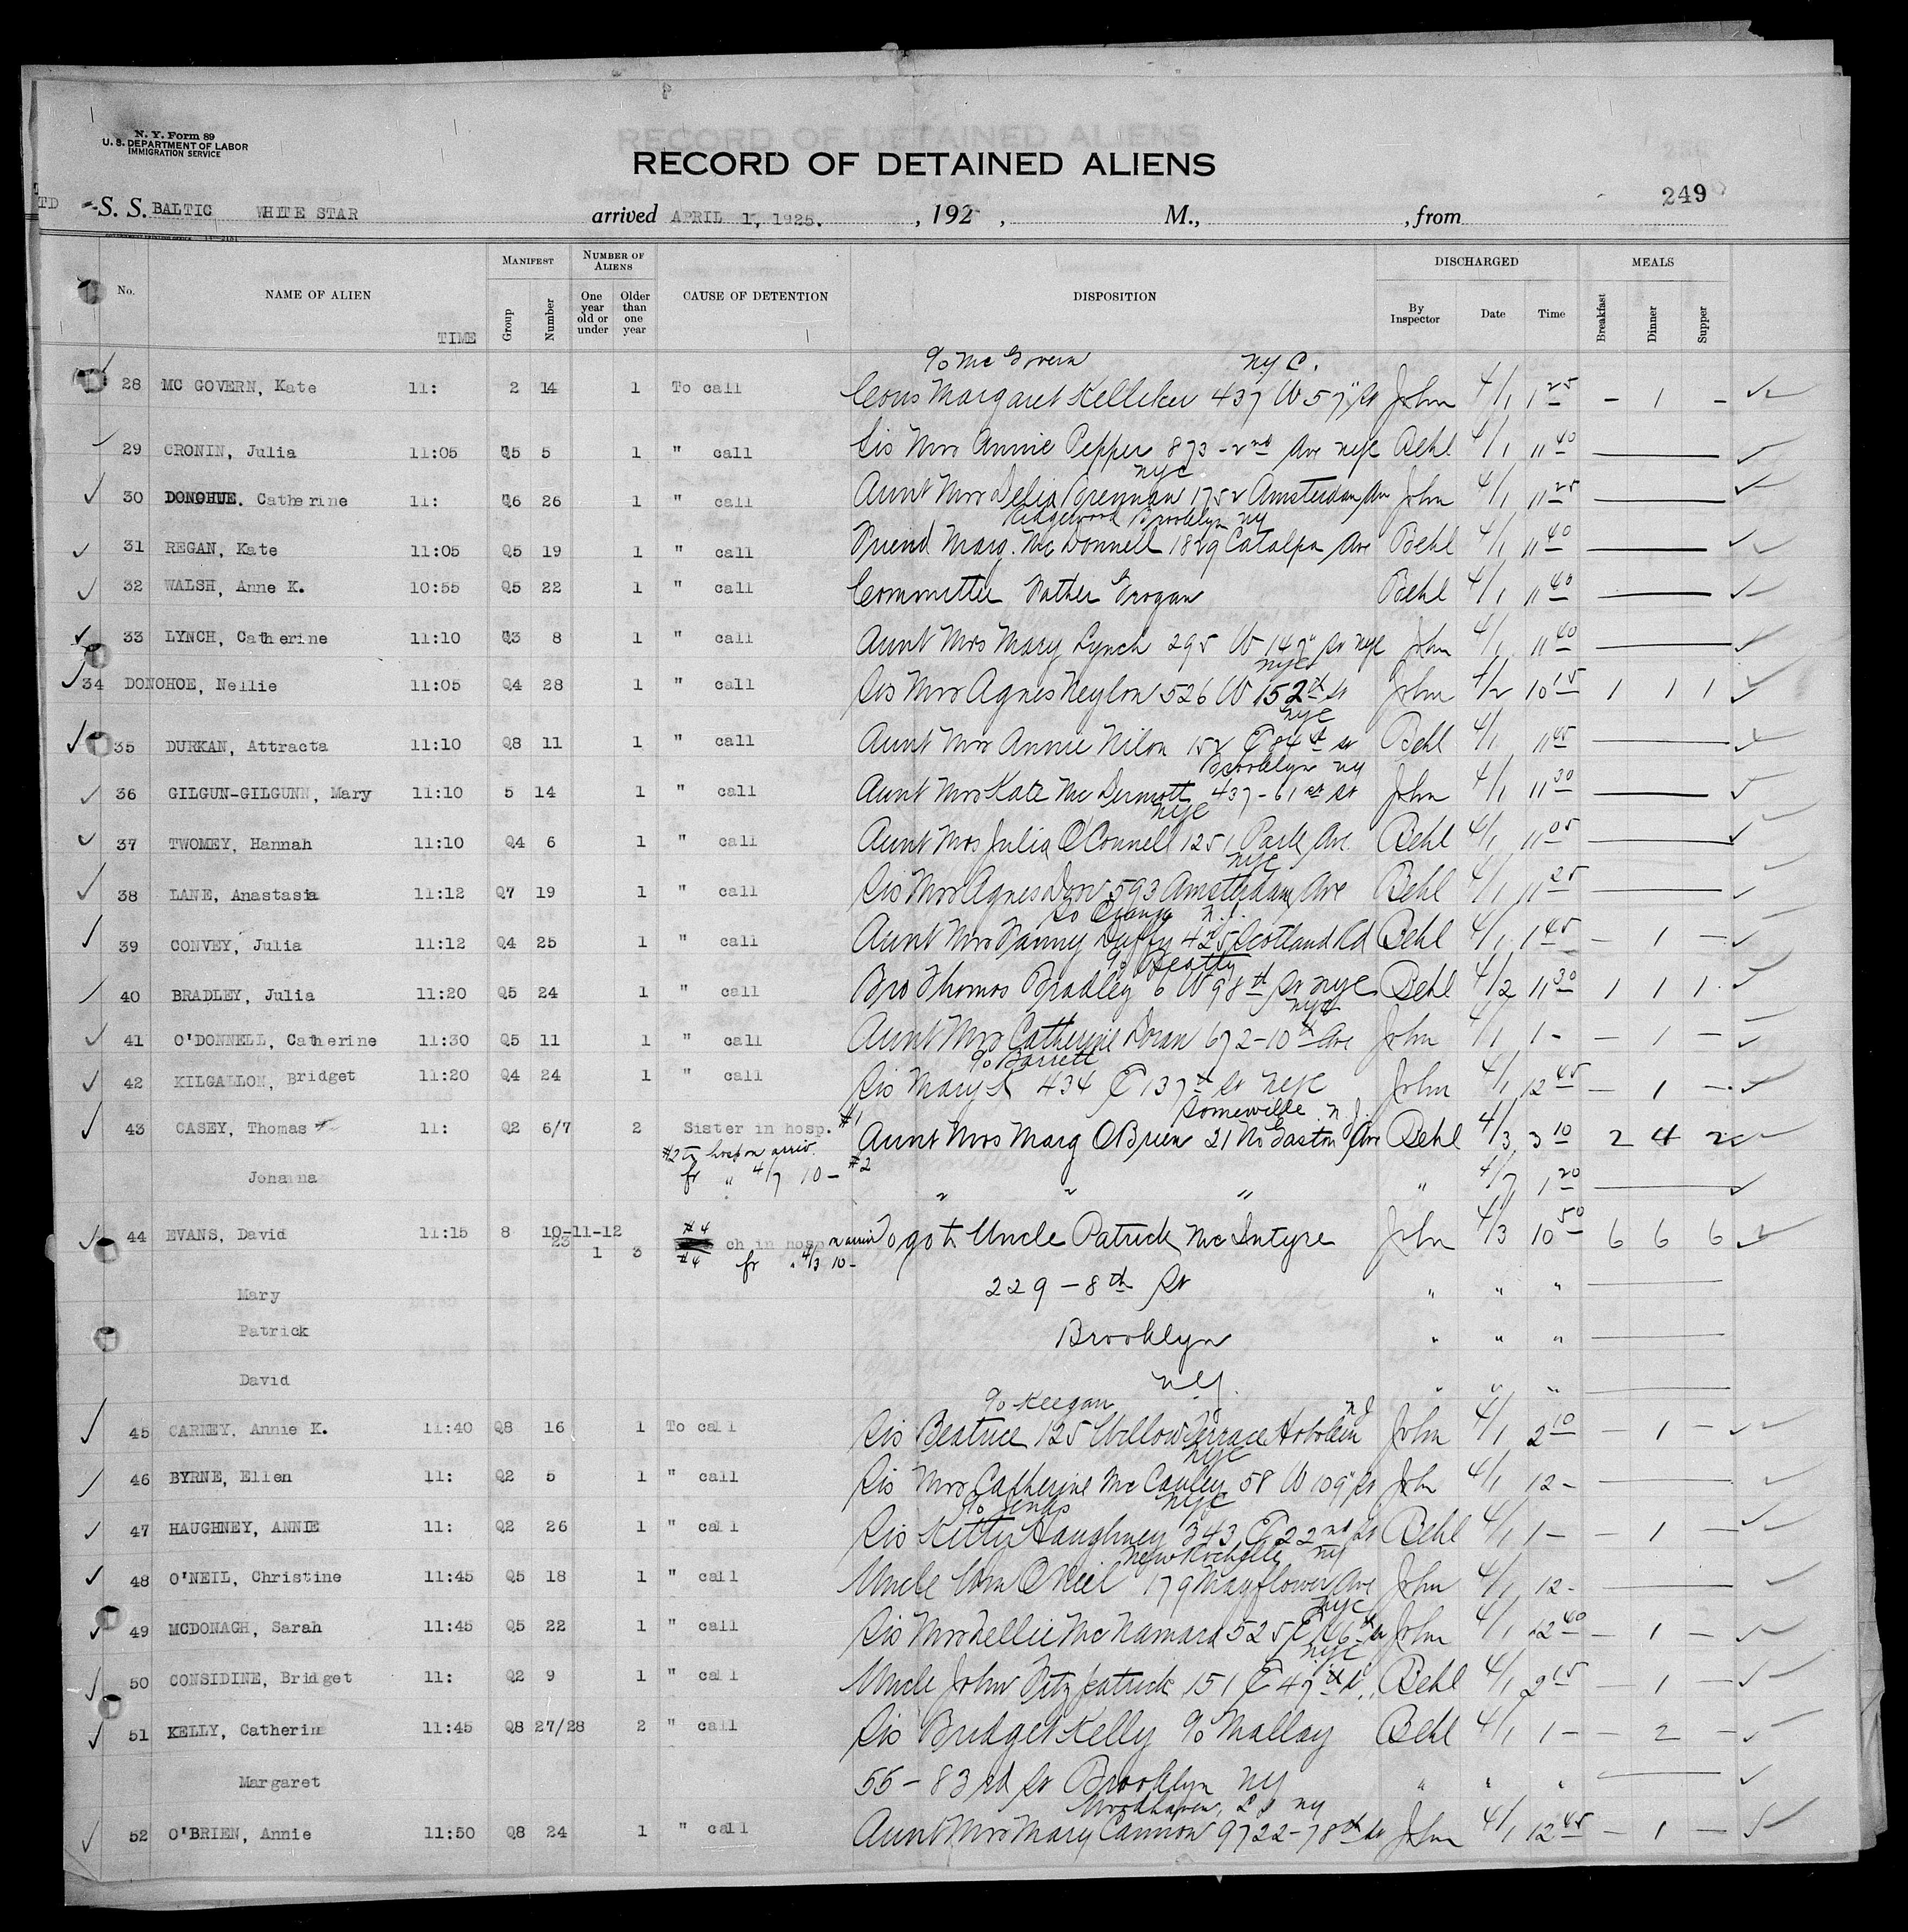 N. Y. Form 89
U. S. DEPARTMENT OF LABOR
IMMIGRATION SERVICE
RECORD OF DETAINED ALIENS
249
TD S. S. BALTIC WHITE STAR arrived APRIL 1, 1925. , 192 , M., , from
No. NAME OF ALIEN TIME MANIFEST Group Number NUMBER OF ALIENS One year old or under Older than one year CAUSE OF DETENTION DISPOSITION DISCHARGED By Inspector Date Time MEALS Breakfast Dinner Supper
c/o McGovern NYC.
28 MC GOVERN, Kate 11: 2 14 1 To call Cous Margaret Kelleher 437 W 57" St John 4/1 1 25 - 1 -
29 CRONIN, Julia 11:05 Q5 5 1 " call Sis Mrs Annie Pepper 873 - 2nd Ave NYC Behl 4/1 11 40
NYC
30 DONOHUE. Catherine 11: Q6 26 1 " call Aunt Mrs Delia Brennan 1752 Amsterdam Ave John 4/1 11 25
Ridgewood Brooklyn NY
31 REGAN, Kate 11:05 Q5 19 1 " call Friend Marg. McDonnell 1829 Catalpa Ave Behl 4/1 11 40
32 WALSH, Anne K. 10:55 Q5 22 1 " call Committee Father Grogan Behl 4/1 11 40
33 LYNCH, Catherine 11:10 Q3 8 1 " call Aunt Mrs Mary Lynch 295 W 147" St NYC John 4/1 11 40
NYC
34 DONOHOE, Nellie 11:05 Q4 28 1 " call Sis Mrs Agnes Neylon 526 W 152th St John 4/2 10 15 1 1 1
NYC
35 DURKAN, Attracta 11:10 Q8 11 1 " call Aunt Mrs Annie Nilon 152 E 84th St Behl 4/1 11 45
Brooklyn NY
36 GILGUN-GILGUNN, Mary 11:10 5 14 1 " call Aunt Mrs Kate McDermott 437 - 61st St John 4/1 11 30
NYC
37 TWOMEY, Hannah 11:10 Q4 6 1 " call Aunt Mrs Julia O'Connell 1251 Park Ave. Behl 4/1 11 05
NYC
38 LANE, Anastasia 11:12 Q7 19 1 " call Sis Mrs Agnes Dow 593 Amsterdam Ave Behl 4/1 11 25
So Orange N.J.
39 CONVEY, Julia 11:12 Q4 25 1 " call Aunt Mrs Fanny Duffy 425 Scotland Rd Behl 4/1 1 45 - 1 -
c/o Beatty
40 BRADLEY, Julia 11:20 Q5 24 1 " call Bro Thomas Bradley 6 W 98th St NYC Behl 4/2 11 30 1 1 1
NYC
41 O'DONNELL, Catherine 11:30 Q5 11 1 " call Aunt Mrs Catherine Doran 672 - 10th Ave John 4/1 1 - - 1 -
c/o Barrett
42 KILGALLON, Bridget 11:20 Q4 24 1 " call Sis Mary 434 E 137th St NYC John 4/1 12 45 - 1 -
Somerville N.J.
43 CASEY, Thomas 11: Q2 6/7 2 Sister in hosp. #1 Aunt Mrs Marg O'Brien 21 No Gaston Ave Behl 4/3 3 10 2 4 2
#2 in hosp on arriv.
Johanna fr " 4/7 10 - #2 " " " " 4/7 1 20
44 EVANS, David 11:15 8 10-11-12 23 1 3 #4 ch in hosp on arriv To go to Uncle Patrick McIntyre John 4/3 10 50 6 6 6
#4 fr " 4/3 10 -
229 - 8th St
Mary " " "
Patrick Brooklyn " " "
David NY. " " "
c/o Keegan N.J.
45 CARNEY, Annie K. 11:40 Q8 16 1 To call Sis Beatrice 125 Willow Terrace Hoboken John 4/1 2 10 - 1 -
NYC
46 BYRNE, Ellen 11: Q2 5 1 " call Sis Mrs Catherine McCauley 58 W 109" St John 4/1 12 -
c/o Jenks NYC
47 HAUGHNEY, ANNIE 11: Q2 26 1 " call Sis Kitty Haughney 343 E 22nd St Behl 4/1 1 - - 1 -
New Rochelle NY
48 O'NEIL, Christine 11:45 Q5 18 1 " call Uncle Wm O'Neil 179 Mayflower Ave John 4/1 12 -
NYC
49 MCDONAGH, Sarah 11:45 Q5 22 1 " call Sis Mrs Nellie McNamara 525 E St John 4/1 12 40 - 1 -
NYC
50 CONSIDINE, Bridget 11: Q2 9 1 " call Uncle John Fitzpatrick 151 E 47th St. Behl 4/1 2 15 - 1 -
51 KELLY, Catherine 11:45 Q8 27/28 2 " call Sis Bridget Kelly c/o Mallay Behl 4/1 1 - - 2 -
Margaret 55 - 83rd St Brooklyn NY " " "
Woodhaven, L I NY
52 O'BRIEN, Annie 11:50 Q8 24 1 " call Aunt Mrs Mary Cannon 9722 - 78th St John 4/1 12 45 - 1 -